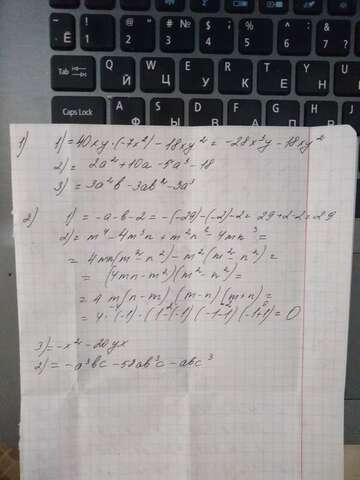 Ё
1
2
3
4
$
;
5
%
6
^
7
&
8
*
Tab
Q
Й
W
Ц
E
У
R
К
T
Е
Y
Н
U
Г
Caps Lock
A
1) 1) = 40xy · (-7x²) - 18xy² = -28x³y - 18xy²
2) = 2a² + 10a - 5a³ - 18
3) = 3a²b - 3ab² - 9a³
2) 1) = -a - b - 2 = -(-29) - (-2) - 2 = 29 + 2 - 2 = 29
2) = m⁴ - 4m³n + m²n² - 4mn³ =
= 4mn(m² - n²) - m²(m² - n²) =
= (4mn - m²)(m² - n²) =
= 4 m(n - m) (m - n)(m + n) =
= 4 · (-1) · (1 - (-1)) (-1-1) (-1+1) = 0
3) = -x² - 20yx
2) = -a³bc - 58ab³c - abc³